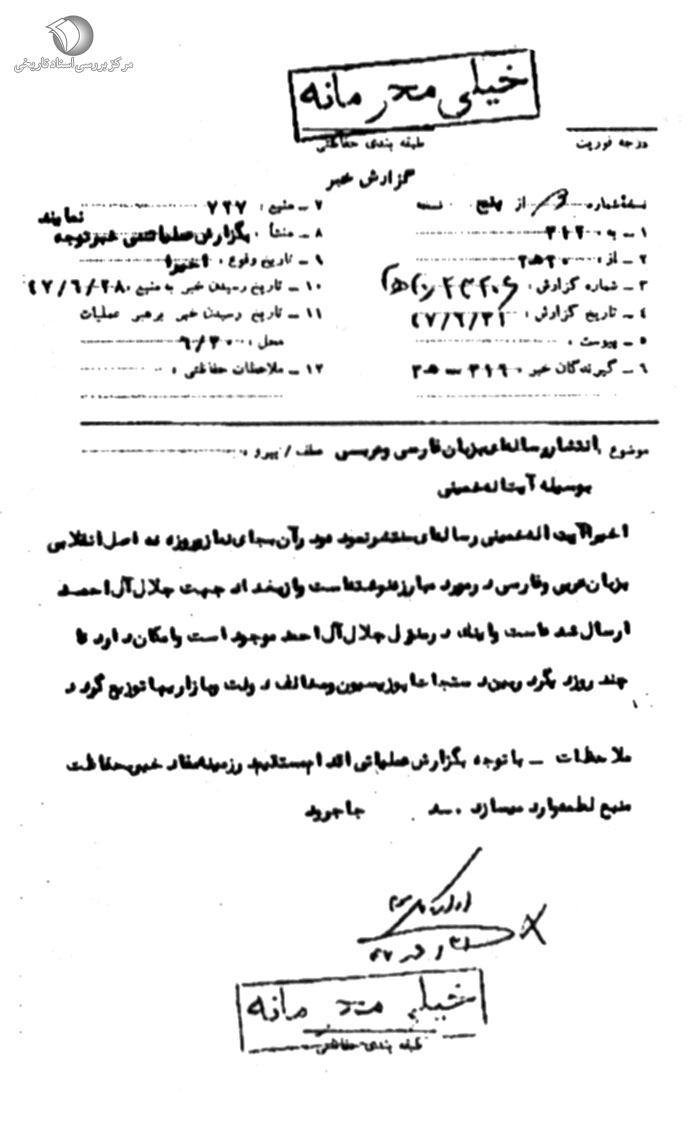 مرکز بررسی اسناد تاریخی
خیلی محرمانه
طبقه بندی حفاظتی
درجه فوریت
گزارش خبر
نسخه شماره از پنج نسخه
۱ - به ۳۱۲
۲ - از : ۲۰ ه ۲
۳ - شماره گزارش :
۴ - تاریخ گزارش : ۴۷/۶/۳۱
۵ - پیوست :
۶ - گیرندگان خبر ۳۱۶ - ۲۵
۷ - منبع : ۷۲۷
۸ - منشأ : بگزارش عملیاتی خبر توجه نمایند
۹ - تاریخ وقوع : اخیرا
۱۰ - تاریخ رسیدن خبر به منبع ۴۷/۶/۲۸
۱۱ - تاریخ رسیدن خبر برهبر عملیات
محل : ۶/۳۰
۱۲ - ملاحظات حفاظتی :
موضوع : انتشار رساله‌ای بزبان فارسی و عربی عطف / پیرو :
بوسیله آیت اله خمینی
اخیرا آیت اله خمینی رساله‌ای منتشر نموده و در آن بجای نماز و روزه ده اصل انقلابی
بزبان عربی و فارسی در مورد مبارزه نوشته است و از بغداد جهت جلال آل احمد
ارسال شده است و اینک در منزل جلال آل احمد موجود است و امکان دارد تا
چند روز دیگر بین دستجات اپوزیسیون و مخالف دولت و بازاریها توزیع گردد
ملاحظات - با توجه بگزارش عملیاتی اقدام مستقیم در زمینه مفاد خبر بحفاظت
منبع لطمه وارد میسازد . جاجرود
خیلی محرمانه
طبقه بندی حفاظتی